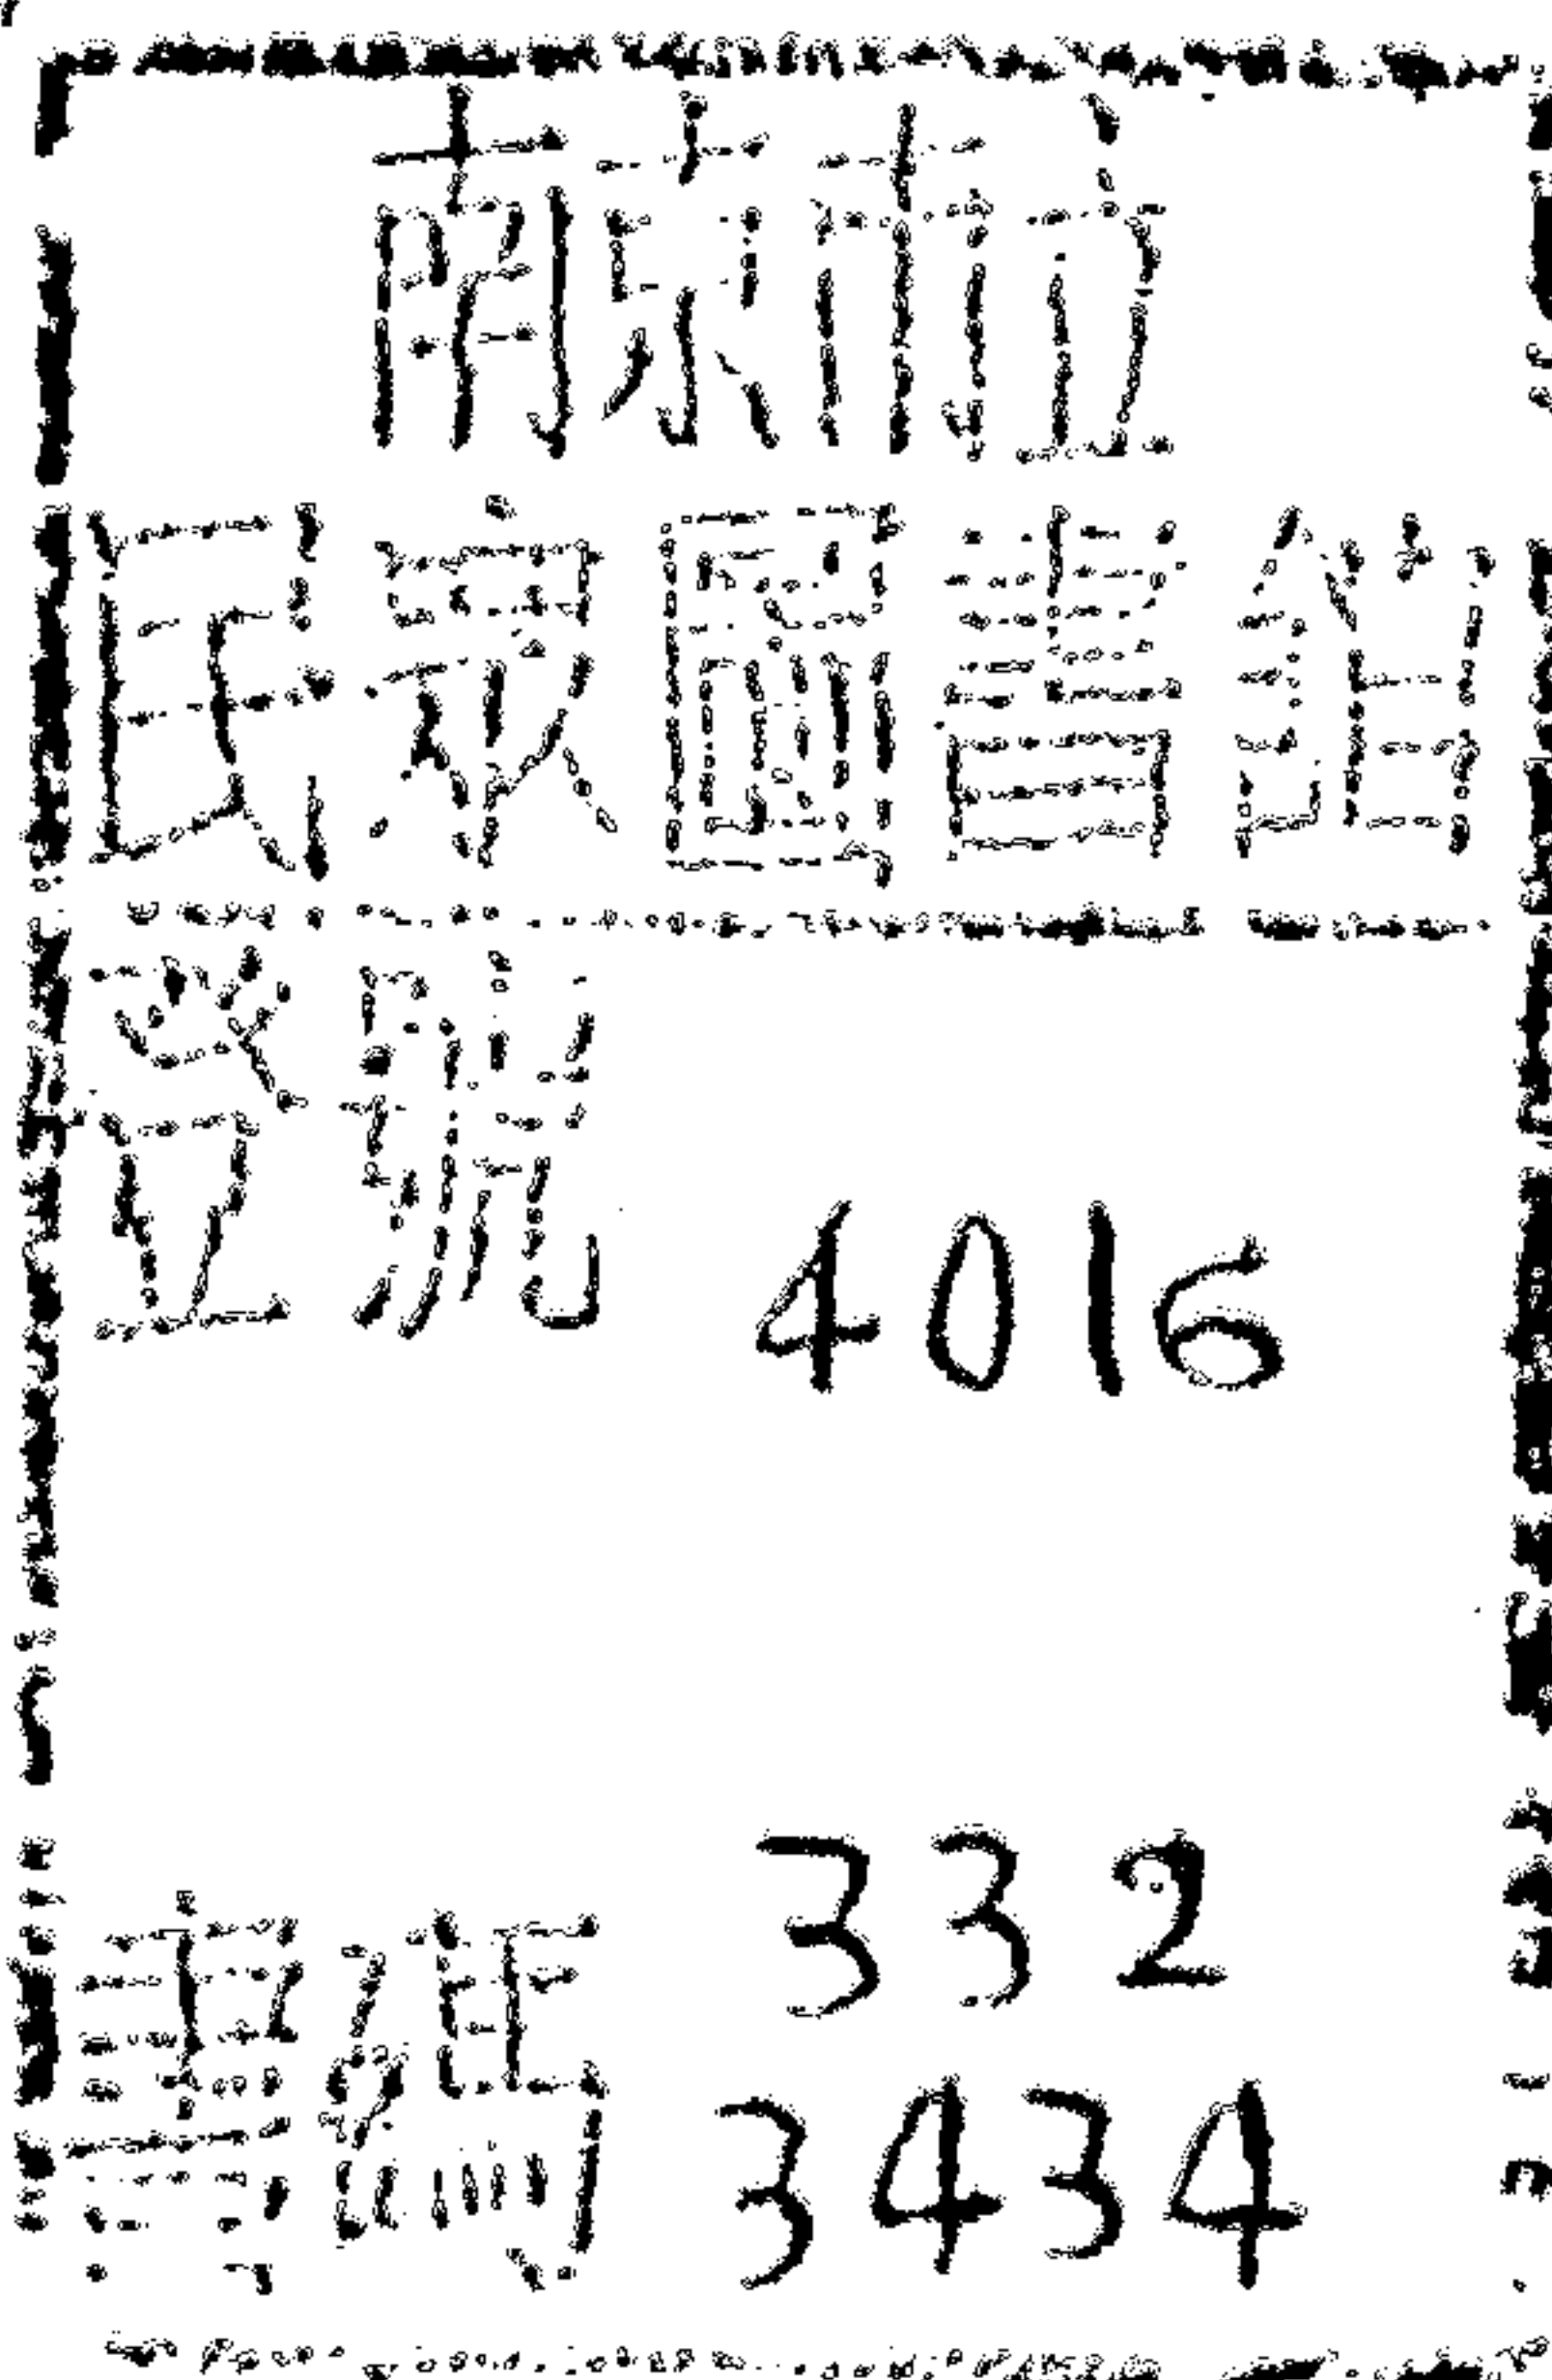 南京市立
民眾圖書館
登號 4016
書碼 332
3434